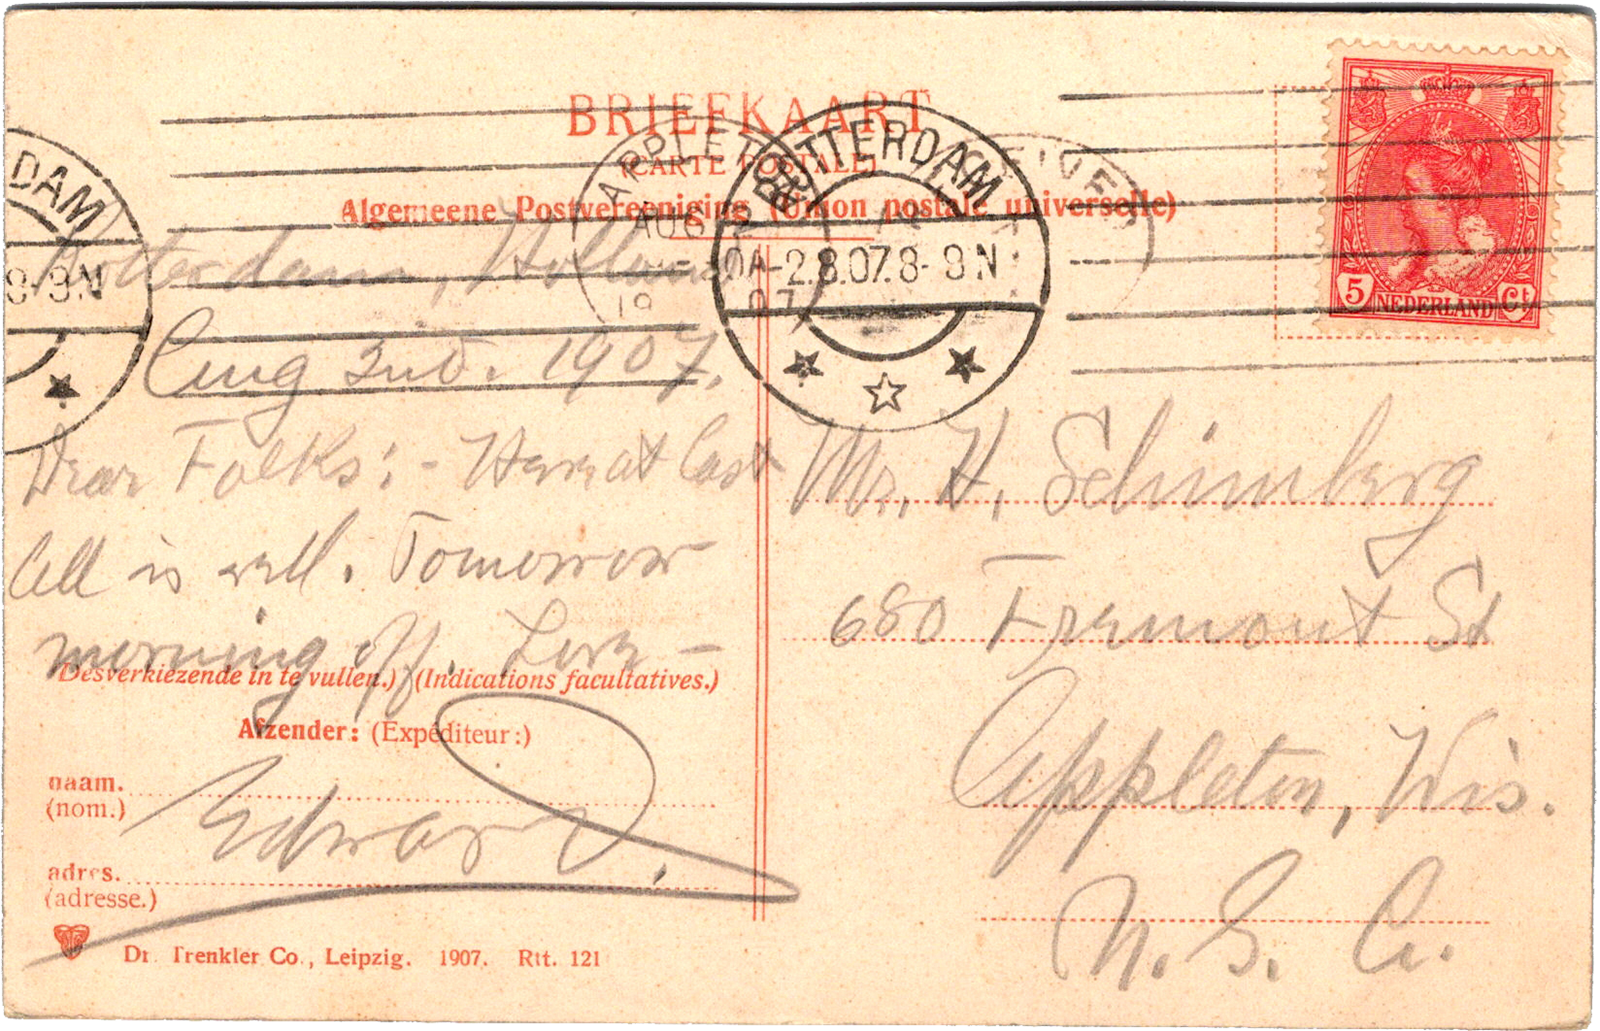 BRIEFKAART
(CARTE POSTALE)
Algemeene Postvereeniging (Union postale universelle)
ROTTERDAM
-2.8.07.8-9N
DAM
8-9N
APPLETON
AUG
19 07
5 NEDERLAND Ct
Rotterdam, Holland
Aug 2nd. 1907.
Dear Folks:- Here at last
All is well. Tomorrow
morning off. Love -
Edward.
Mr. H. Schimberg
680 Fremont St
Appleton, Wis.
U. S. A.
Desverkiezende in te vullen.) (Indications facultatives.)
Afzender: (Expéditeur:)
naam.
(nom.)
adres.
(adresse.)
Dr. Trenkler Co., Leipzig. 1907. Rtt. 121